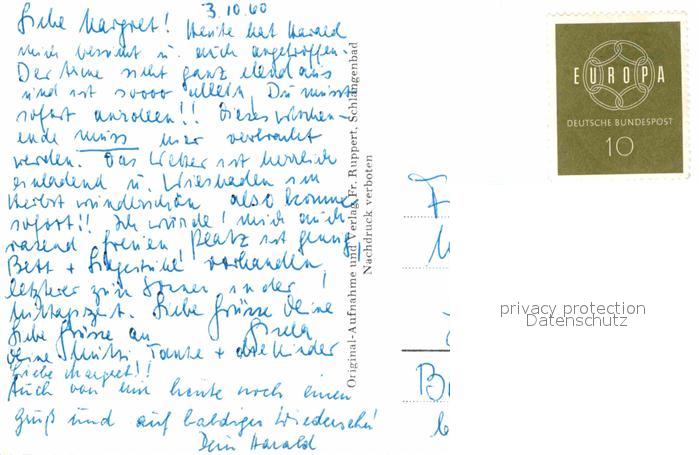 3.10.60
Liebe Margret! Heute hat Harald
mich besucht u. auch angetroffen.
Der Arme sieht ganz elend aus
und ist soooo allein. Du musst
sofort anrollen!! Dieses Wochen-
ende muss hier verbracht
werden. Das Wetter ist herrlich
einladend u. Wiesbaden im
Herbst wunderschön also komme
sofort!! Ich würde mich auch
rasend freuen, Platz ist genug,
Bett + Liegestühle vorhanden,
letzterer zum Sonnen in der
Mittagszeit. Liebe Grüsse Deine
Gisela
Liebe Grüsse an
Deine Mutti, Tante + die Kinder
Liebe Margret!!
Auch von mir heute noch einen
Gruß und auf baldiges Wiedersehn!
Dein Harald
Original-Aufnahme und Verlag Fr. Ruppert, Schlangenbad
Nachdruck verboten
EUROPA
DEUTSCHE BUNDESPOST
10
privacy protection
Datenschutz
F
B